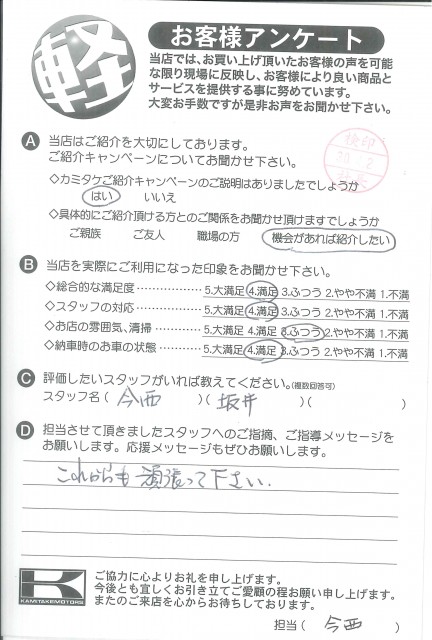 軽
お客様アンケート
当店では、お買い上げ頂いたお客様の声を可能
な限り現場に反映し、お客様により良い商品と
サービスを提供する事に努めています。
大変お手数ですが是非お声をお聞かせ下さい。
検印
A 当店はご紹介を大切にしております。
ご紹介キャンペーンについてお聞かせ下さい。
◇カミタケご紹介キャンペーンのご説明はありましたでしょうか
はい いいえ
◇具体的にご紹介頂ける方とのご関係をお聞かせ頂けますでしょうか
ご親族 ご友人 職場の方 機会があれば紹介したい
B 当店を実際にご利用になった印象をお聞かせ下さい。
◇総合的な満足度 5.大満足 4.満足 3.ふつう 2.やや不満 1.不満
◇スタッフの対応 5.大満足 4.満足 3.ふつう 2.やや不満 1.不満
◇お店の雰囲気、清掃 5.大満足 4.満足 3.ふつう 2.やや不満 1.不満
◇納車時のお車の状態 5.大満足 4.満足 3.ふつう 2.やや不満 1.不満
C 評価したいスタッフがいれば教えてください。(複数回答可)
スタッフ名( 今西 )( 坂井 )( )
D 担当させて頂きましたスタッフへのご指摘、ご指導メッセージを
お願いします。応援メッセージもぜひお願いします。
これからも頑張って下さい.
K
KAMITAKEMOTORS
ご協力に心よりお礼を申し上げます。
今後とも宜しくお引き立てご愛顧の程お願い申し上げます。
またのご来店を心からお待ちしております。
担当( 今西 )